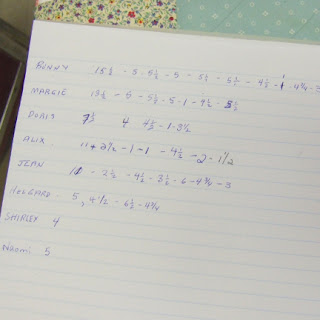 BUNNY 15½ - 5 - 5½ - 5 - 5½ - 5½ - 4½ - 1 - 4¾ - 3
MARGIE 13½ - 5 - 5½ - 5 - 1 - 4½ - 5½
DORIS 7½ 4 4½ - 1 - 3½
ALIX 11 + 2½ - 1 - 1 - 4½ - 2 - 1½
JEAN - 2½ - 4½ - 3½ - 6 - 4¾ - 3
5, 4½ - 6½ - 4¾
SHIRLEY 4
Naomi 5